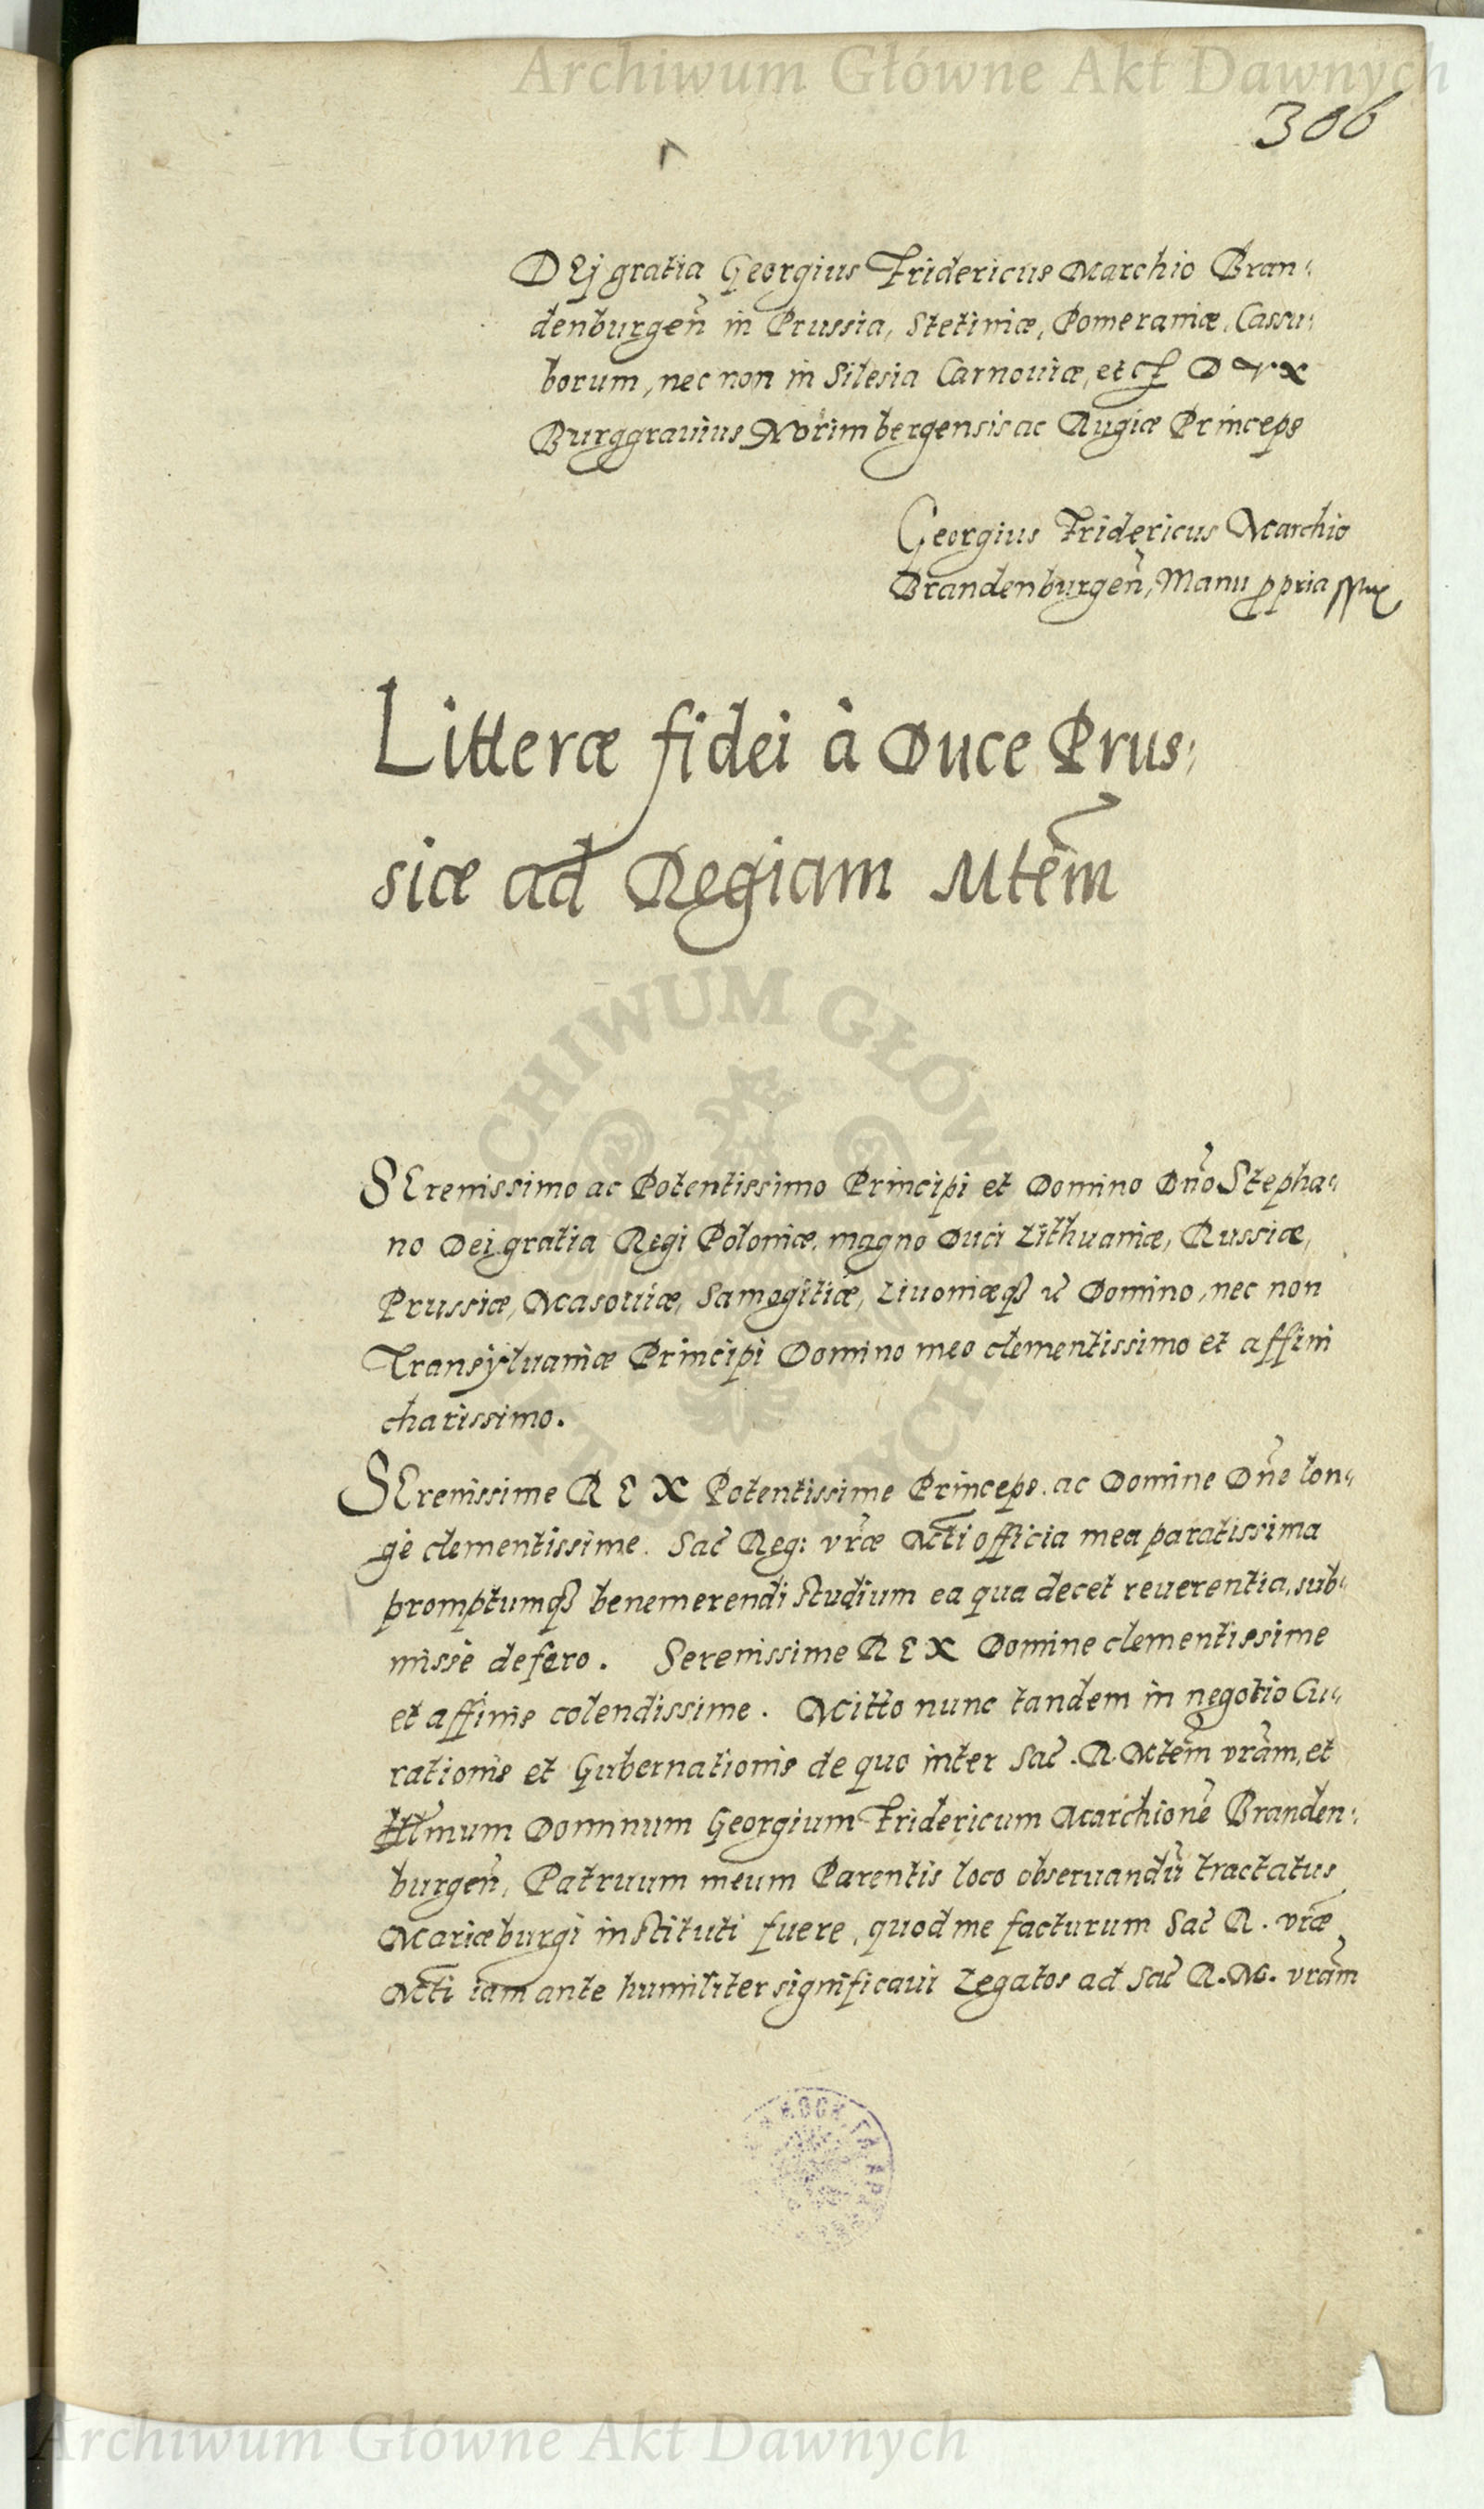 Archiwum Główne Akt Dawnych
306
DEj gratia Georgius Fridericus Marchio Bran:
denburgen̄ in Prussia, Stetiniæ, Pomeraniæ, Cassu:
borum, nec non in Silesia Carnouiæ, etc DVX
Burggrauius Norimbergensis ac Rugiæ Princeps
Georgius Fridericus Marchio
Brandenburgen̄, Manu ꝓpria
Litteræ fidei à Duce Prus:
siæ ad Regiam Mtēm
SErenissimo ac Potentissimo Principi et Domino Dn̄o Stepha:
no Dei gratia Regi Poloniæ, magno Duci Lithuaniæ, Russiæ,
Prussiæ, Masouiæ, Samogitiæ, Liuoniæqꝫ ꝛc Domino, nec non
Transyluaniæ Principi Domino meo clementissimo et affini
charissimo.
SErenissime REX Potentissime Princeps. ac Domine Dn̄e lon:
gè clementissime. Sac̄ Reg: vr̄æ Mt̄i officia mea paratissima
promptumqꝫ benemerendi studium ea qua decet reuerentia, sub:
missè defero. Serenissime REX Domine clementissime
et affinis colendissime. Mitto nunc tandem in negotio Cu:
rationis et Gubernationis de quo inter Sac̄. R. Mtēm vr̄am, et
Illmum Dominum Georgium Fridericum Marchionē Branden:
burgen̄, Patruum meum Parentis loco obseruandū tractatus
Mariæburgi instituti fuere, quod me facturum Sac̄ R. vr̄æ
Mt̄i iam ante humiliter significaui Legatos ad Sac̄ R. M. vr̄am
ARCHIWUM GŁÓWNE AKT DAWNYCH
Archiwum Główne Akt Dawnych